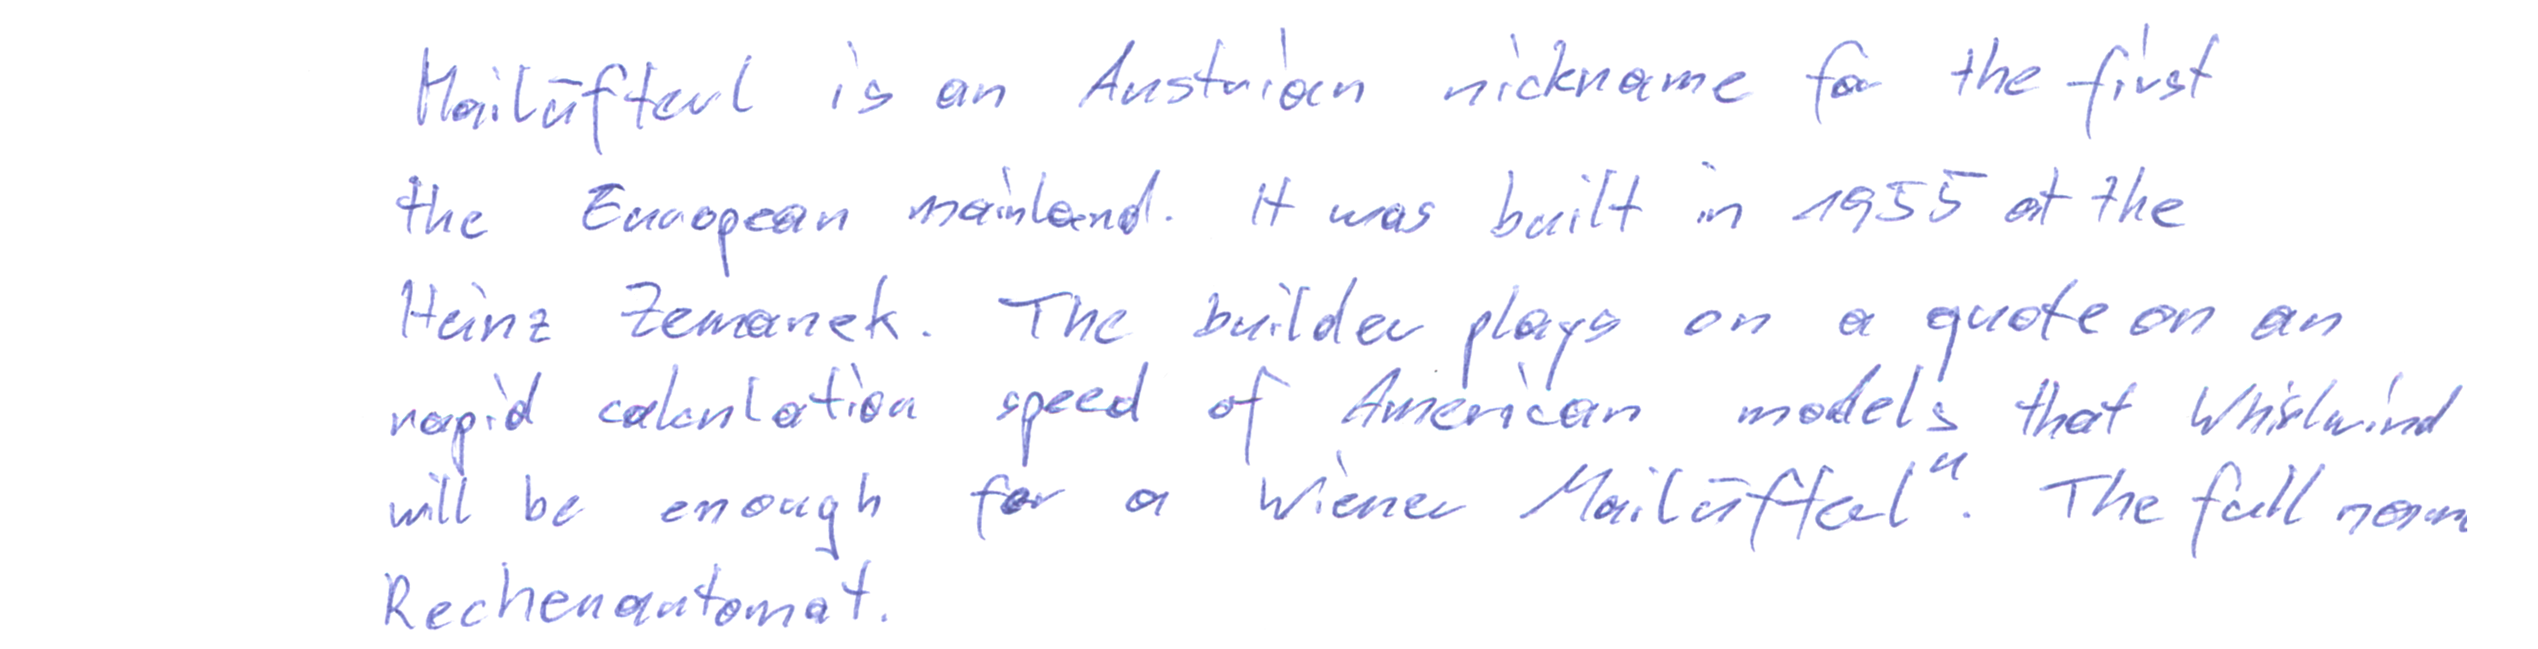 Mailüfterl is an Austrian nickname for the first
the European mainland. It was built in 1955 at the
Heinz Zemanek. The builder plays on a quote on an
rapid calculation speed of American models that Whirlwind
will be enough for a Wiener Mailüfterl". The full nam
Rechenautomat.